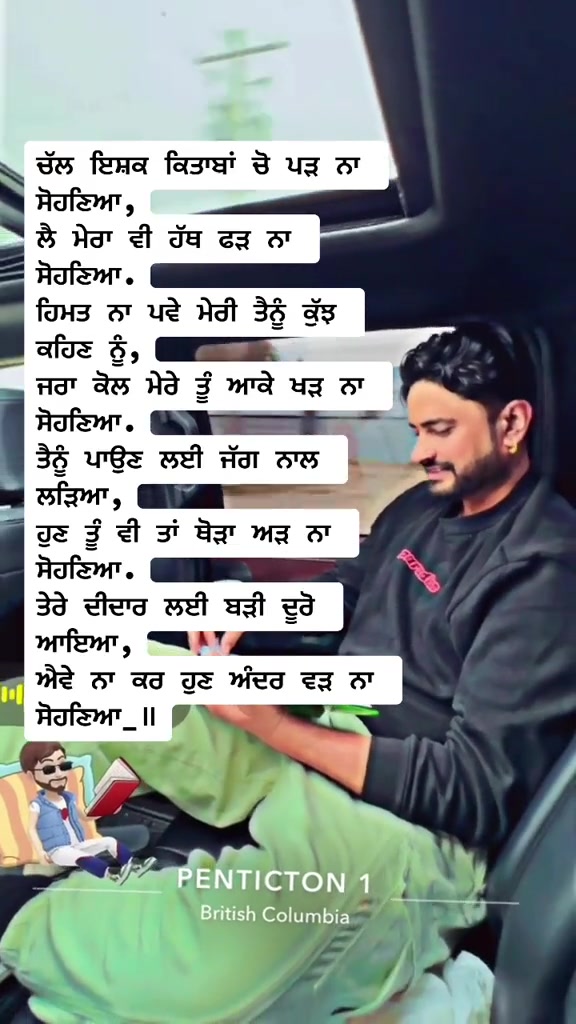 ਚੱਲ ਇਸ਼ਕ ਕਿਤਾਬਾਂ ਚੋ ਪੜ ਨਾ
ਸੋਹਣਿਆ,
ਲੈ ਮੇਰਾ ਵੀ ਹੱਥ ਫੜ ਨਾ
ਸੋਹਣਿਆ.
ਹਿਮਤ ਨਾ ਪਵੇ ਮੇਰੀ ਤੈਨੂੰ ਕੁੱਝ
ਕਹਿਣ ਨੂੰ,
ਜਰਾ ਕੋਲ ਮੇਰੇ ਤੂੰ ਆਕੇ ਖੜ ਨਾ
ਸੋਹਣਿਆ.
ਤੈਨੂੰ ਪਾਉਣ ਲਈ ਜੱਗ ਨਾਲ
ਲੜਿਆ,
ਹੁਣ ਤੂੰ ਵੀ ਤਾਂ ਥੋੜਾ ਅੜ ਨਾ
ਸੋਹਣਿਆ.
ਤੇਰੇ ਦੀਦਾਰ ਲਈ ਬੜੀ ਦੂਰੋ
ਆਇਆ,
ਐਵੇ ਨਾ ਕਰ ਹੁਣ ਅੰਦਰ ਵੜ ਨਾ
ਸੋਹਣਿਆ_॥
PENTICTON 1
British Columbia